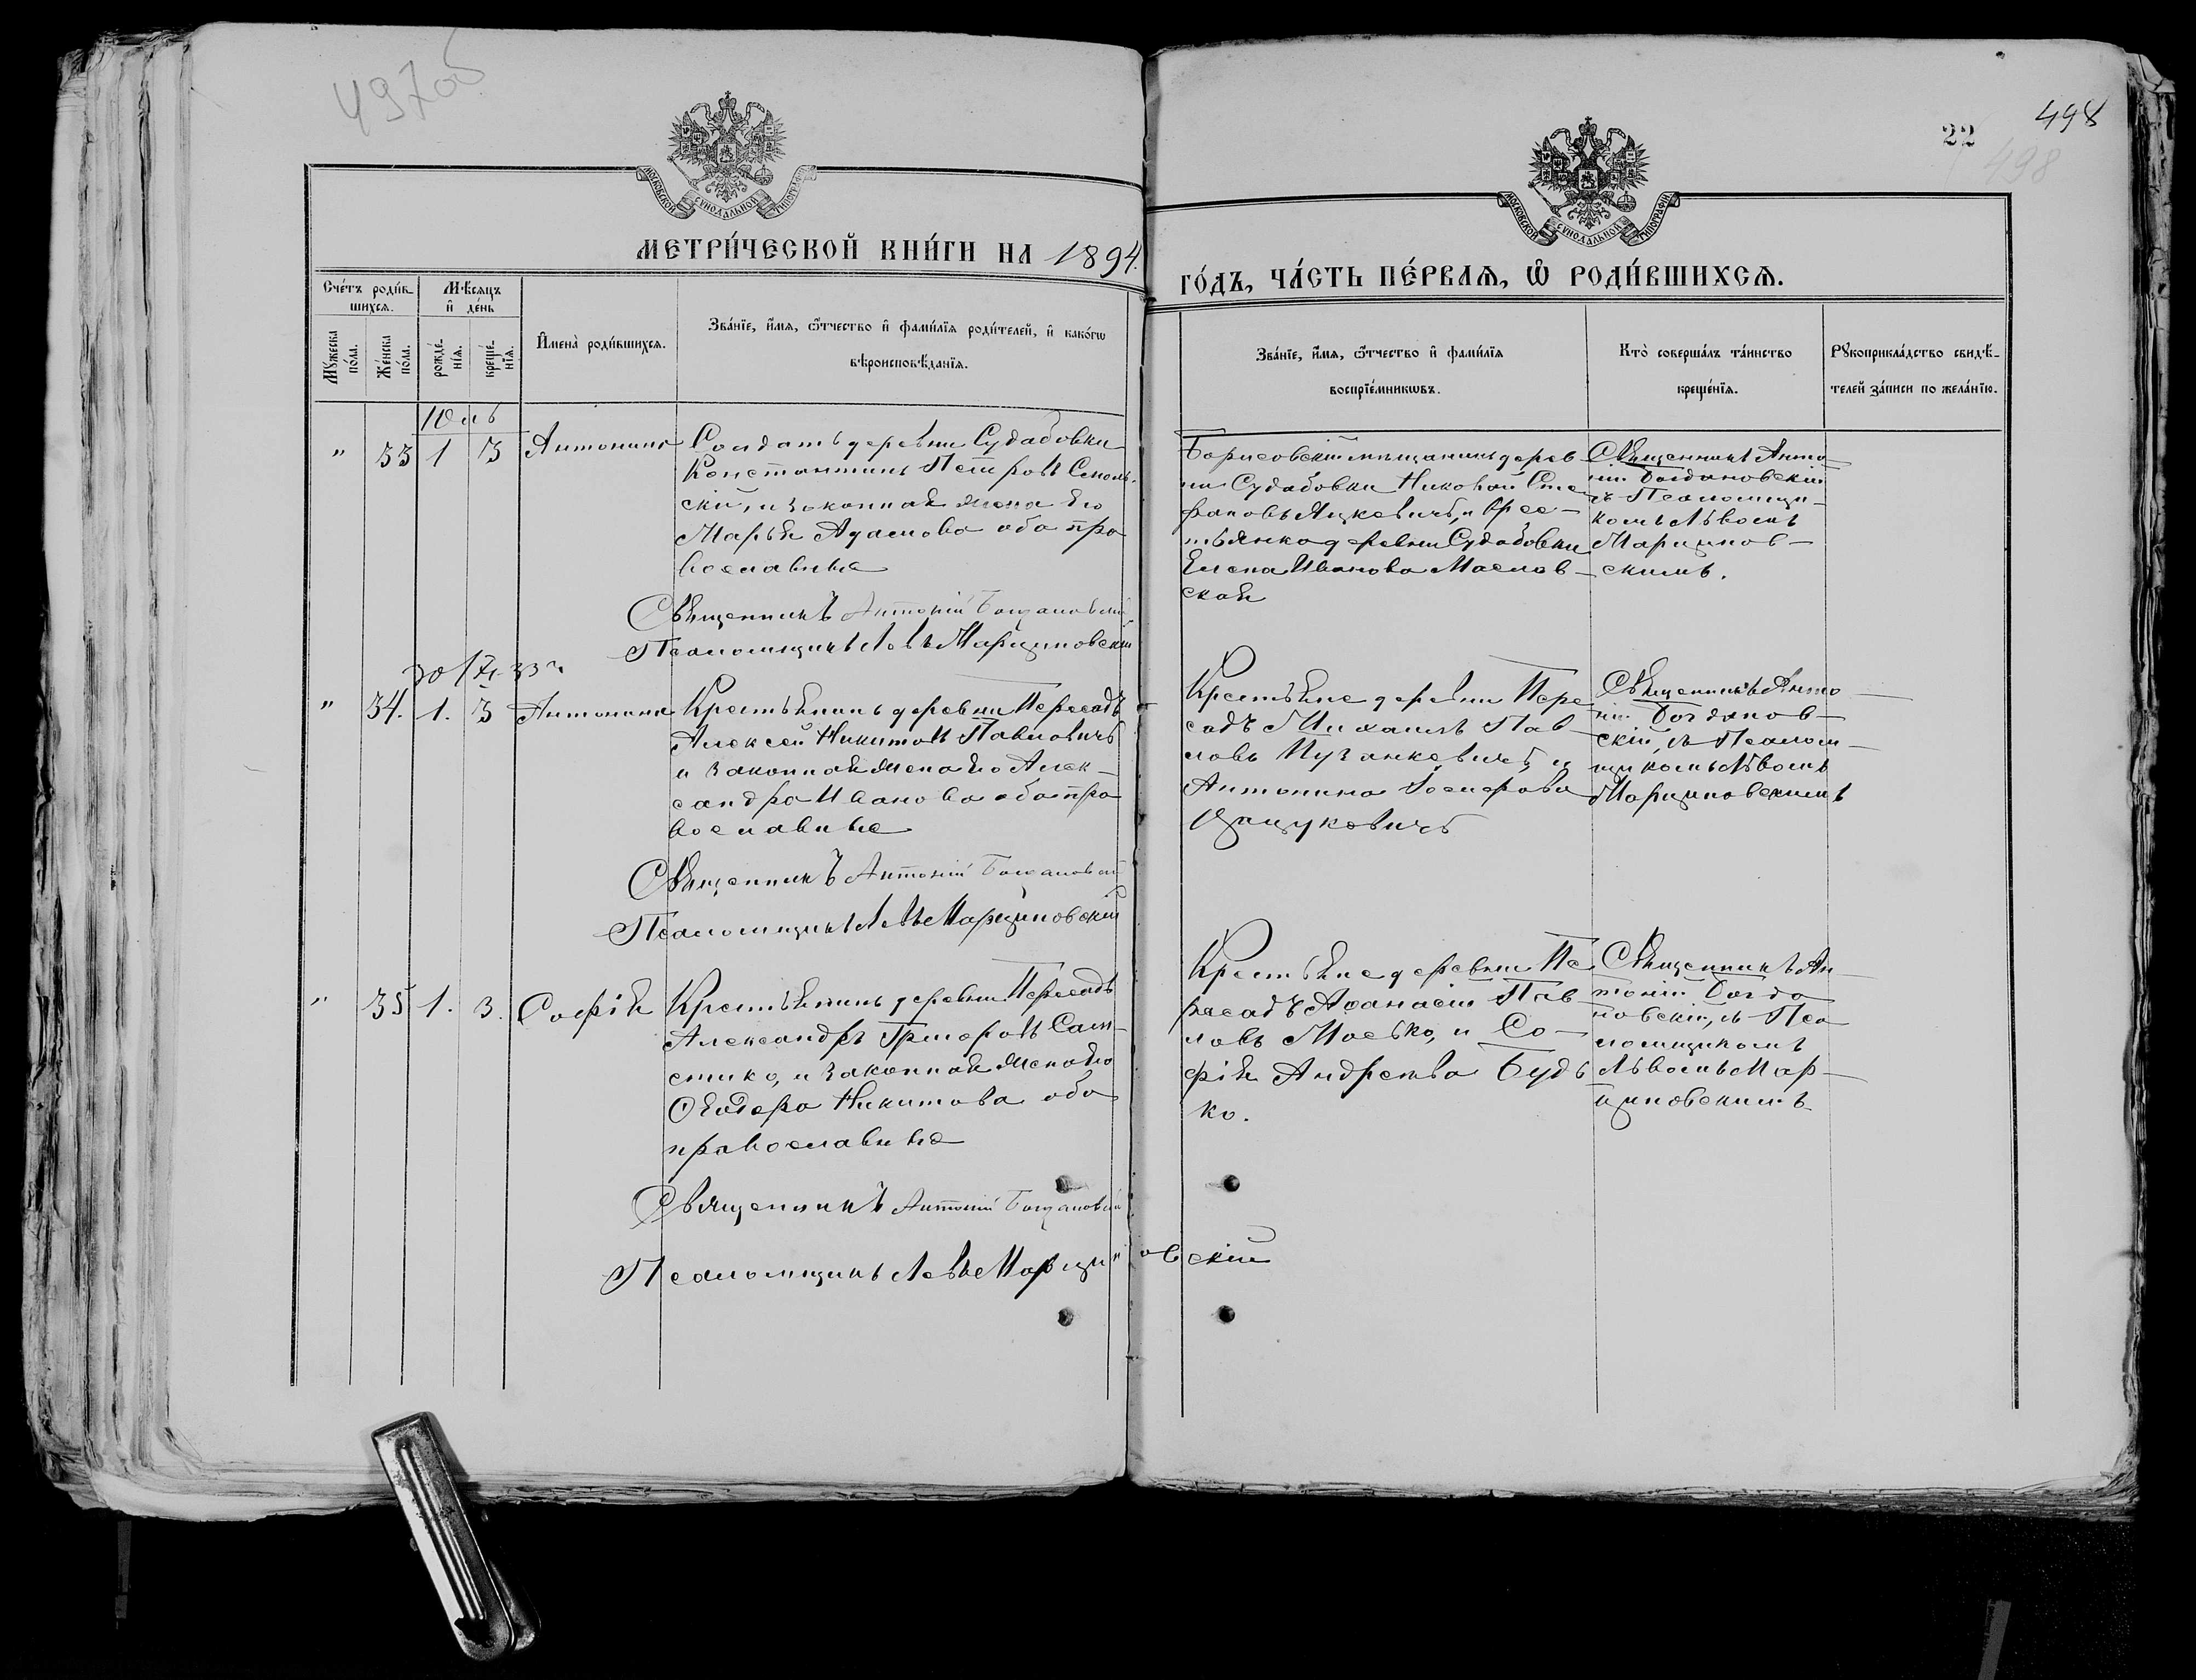 497об
498
22
498
МОСКОВСКОЙ СѴНОДАЛЬНОЙ ТИПОГРАФІИ
МОСКОВСКОЙ СѴНОДАЛЬНОЙ ТИПОГРАФІИ
МЕТРИ́ЧЕСКОЙ КНИ́ГИ НА 1894.
ГО́ДЪ, ЧА́СТЬ ПЕ́РВАѦ, Ѡ҆ РОДИ́ВШИХСѦ.
Сче́тъ роди́в-
шихсѧ.
Мѣ́сѧцъ
и҆ де́нь
Мꙋ́жеска по́ла.
Же́нска по́ла.
рожде́-нїѧ.
креще́-нїѧ.
И҆мена̀ роди́вшихсѧ.
Зва́нїе, и҆́мѧ, ѻ҆́тчество и҆ фами́лїѧ роди́телей, и҆ како́гѡ
вѣроисповѣ́данїѧ.
Зва́нїе, и҆́мѧ, ѻ҆́тчество и҆ фами́лїѧ
воспрїе́мникѡвъ.
Кто̀ соверша́лъ та́инство
креще́нїѧ.
Рꙋкоприкла́дство свидѣ́-
телей за́писи по жела́нїю.
Юль
" 33 1 3 Антонина
Солдатъ деревни Судабовки
Константинъ Петровъ Смоль-
скій, и законная жена его
Марья Адамова оба пра
вославные
Священникъ Антоній Богдановскій
Псаломщикъ Левъ Марциновскій
Борисовскій мещанинъ дерев
ни Судабовки Николай Сте
фановъ Яцкевичъ, и крес-
тьянка деревни Судабовки
Елена Иванова Маслов-
ская
Священникъ Анто-
ній Богдановскій
съ Псаломщи-
комъ Львомъ
Марцинов-
скимъ.
" 34. 1. 3 Антонина
Крестьянинъ деревни Пересадъ
Алексей Никитовъ Павловичъ
и законная жена его Алек-
сандра Иванова оба пра
вославные
Священникъ Антоній Богдановскій
Псаломщикъ Левъ Марциновскій
Крестьяне деревни Пере
садъ Михаилъ Пав
ловъ Пузанкевичъ, и
Антонина Іосифова
Цацукевичъ
Священникъ Анто
ній Богданов-
скій, съ Псалом-
щикомъ Львомъ
Марциновскимъ
" 35 1. 3. Софія
Крестьянинъ деревни Пересадъ
Александръ Григоровъ Сам-
стыко, и законная жена его
Ѳеодора Никитова оба
православные
Священникъ Антоній Богдановскій
Псаломщикъ Левъ Марциновскій
Крестьяне деревни Пе
ресадъ Аѳанасій Пав
ловъ Моєько, и Со-
фія Андреева Будь
ко.
Священникъ Ан-
тоній Богда
новскій, съ Пса
ломщикомъ
Львомъ Мар-
циновскимъ